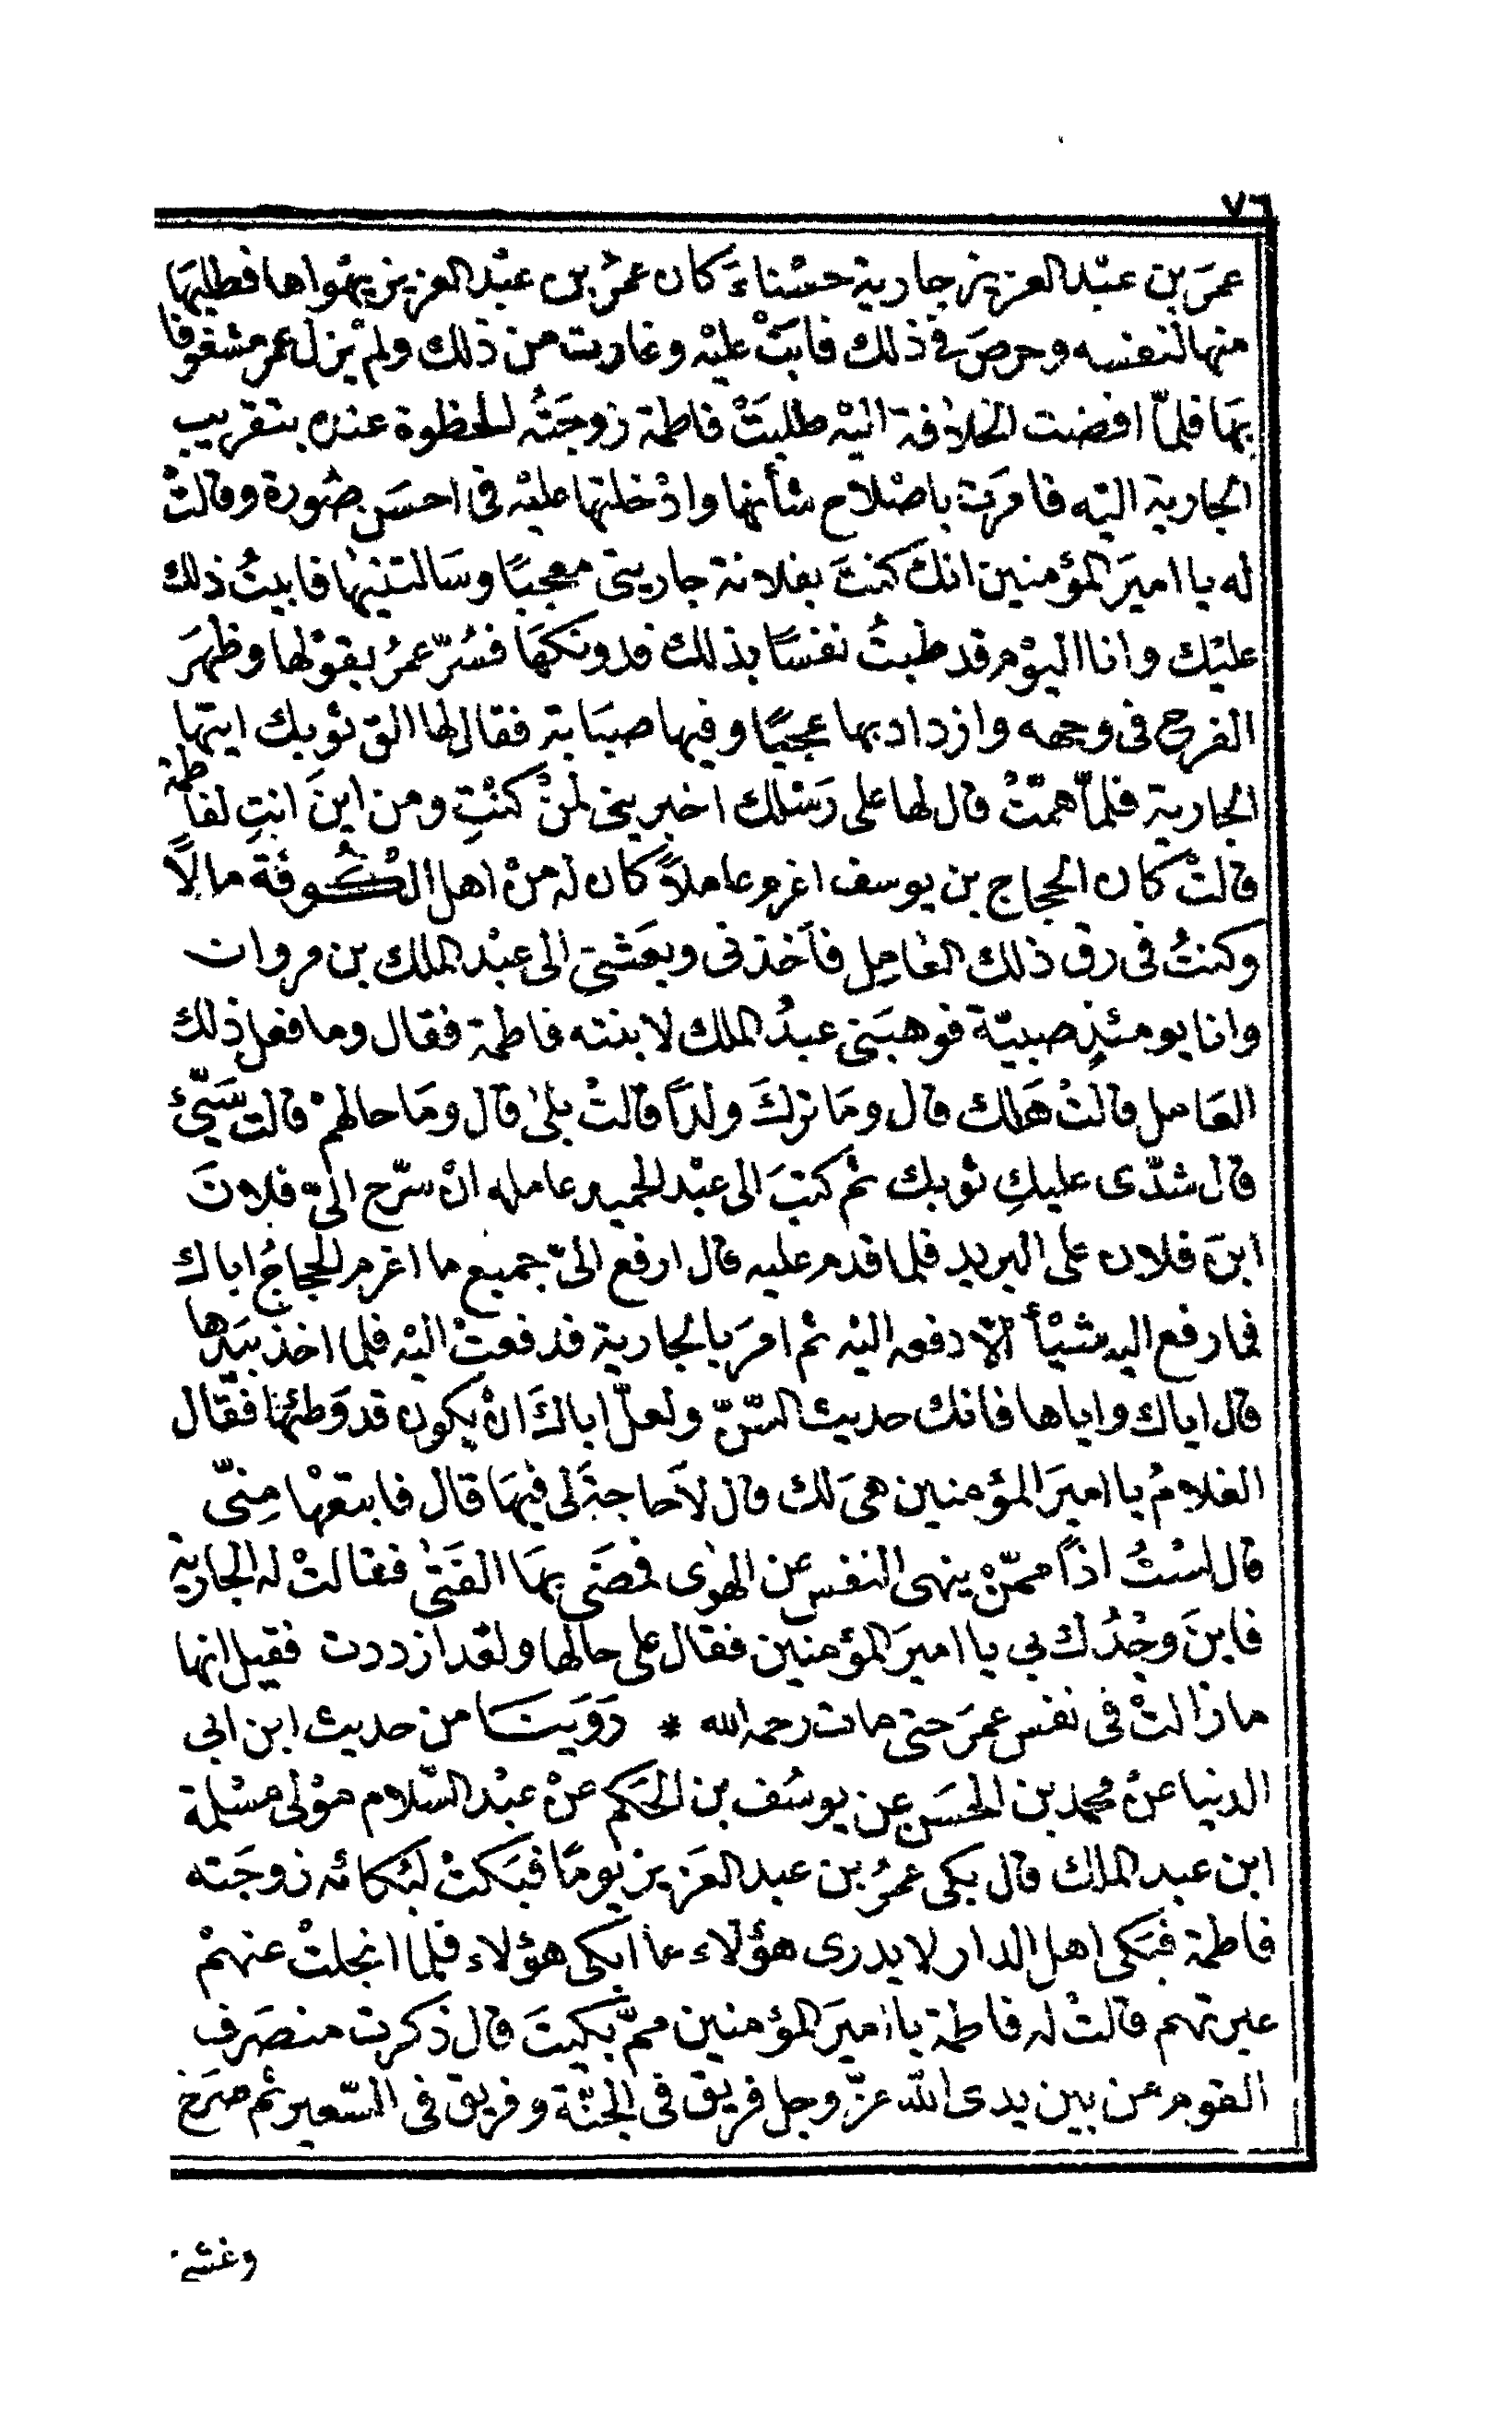 ٧٦
عمَر بن عبْد العزيز جارية حسْناءَ كان عمرُ بن عبْد العزيز يهْواها فطلبهَا
منها لنفسه وحرصَ فى ذلك فابَتْ عليْه وغارت من ذلك ولمْ يزل عمر مشغوفا
بهَا فلمّا افضت الخلافة اليْه طلبَتْ فاطمة زوجَتُه الحظوة عنده بتقريب
الجارية اليْه فامرَت باصْلاح شأنها وادْخلتها عليْه فى احسَن صُورة وقالتْ
له يا اميرَ المؤمنين انك كنتَ بفلانة جاريتى معجبًا وسَالتنيهَا فابيتُ ذلك
عليْك وانا اليوْم قد طبتُ نفسًا بذلك فدونكهَا فسُرّ عمرُ بقوْلها وظهرَ
الفرح فى وجهه وازداد بها عجبًا وفيها صبَابة فقال لها الق ثوبك ايتها
الجارية فلمّا همّتْ قال لها على رَسْلك اخبرينى لمنْ كنْتِ ومن اينَ انتِ لفاطمة
قالتْ كان الحجاج بن يوسف اغرم عاملاً كان له منْ اهل الكُوفَة مالًا
وكنتُ فى رق ذلك العَامِل فأخذنى وبعَثنى الى عبْد الملك بن مروان
وانا يومئذٍ صبيّة فوهبَنى عبدُ الملك لابنته فاطمة فقال وما فعل ذلك
العَامل قالتْ هَلك قال ومَا تركَ ولدًا قالتْ بلىٰ قال ومَا حالهمْ قالت سَيّئ
قال شدّى عليكِ ثوبك ثم كتبَ الى عبْد الحميد عامله انْ سرّح الىّ فلانَ
ابنَ فلان على البريد فلما قدم عليه قال ارفع الىّ جميع ما اغرم الحجاجُ اباك
فما رفع اليه شيْأ الّا دفعه اليْه ثم امَر بالجارية فدفعتْ اليْه فلما اخذ بيَدها
قال اياك واياها فانك حديث السّنّ ولعلّ اباكَ انْ يكون قد وَطئهَا فقال
الغلامُ يا اميرَ المؤمنين هىَ لك قال لَا حاجةَ لى فيهَا قال فابتعْها مِنّى
قال لسْتُ اذًا ممّنْ ينهى النفس عن الهوٰى فمضَى بهَا الفَتىٰ فقالتْ له الجارية
فاينَ وجْدُك بي يا اميرَ المؤمنين فقال على حالها ولقد ازددت فقيل انها
ما زالتْ فى نفس عمرَ حتى مات رحمه الله * رَوَينا من حديث ابن ابى
الدنيا عنْ محمد بن الحسَن عن يوسُف بن الحَكم عنْ عبْد السّلام موْلى مسْلمة
ابن عبد الملك قال بكى عمرُ بن عبد العَزيز يومًا فبَكتْ لبُكائه زوجَته
فاطمة فبَكى اهل الدار لا يدرى هؤلاء ما ابكى هؤلاء فلما انجلتْ عنهمْ
عبرتهم قالتْ له فاطمة يا اميرَ المؤمنين ممّ بكيتَ قال ذكرت منصَرف
القوم من بين يدى الله عزّ وجل فريق فى الجنّة وفريق فى السّعير ثم صرَخ
وغشى